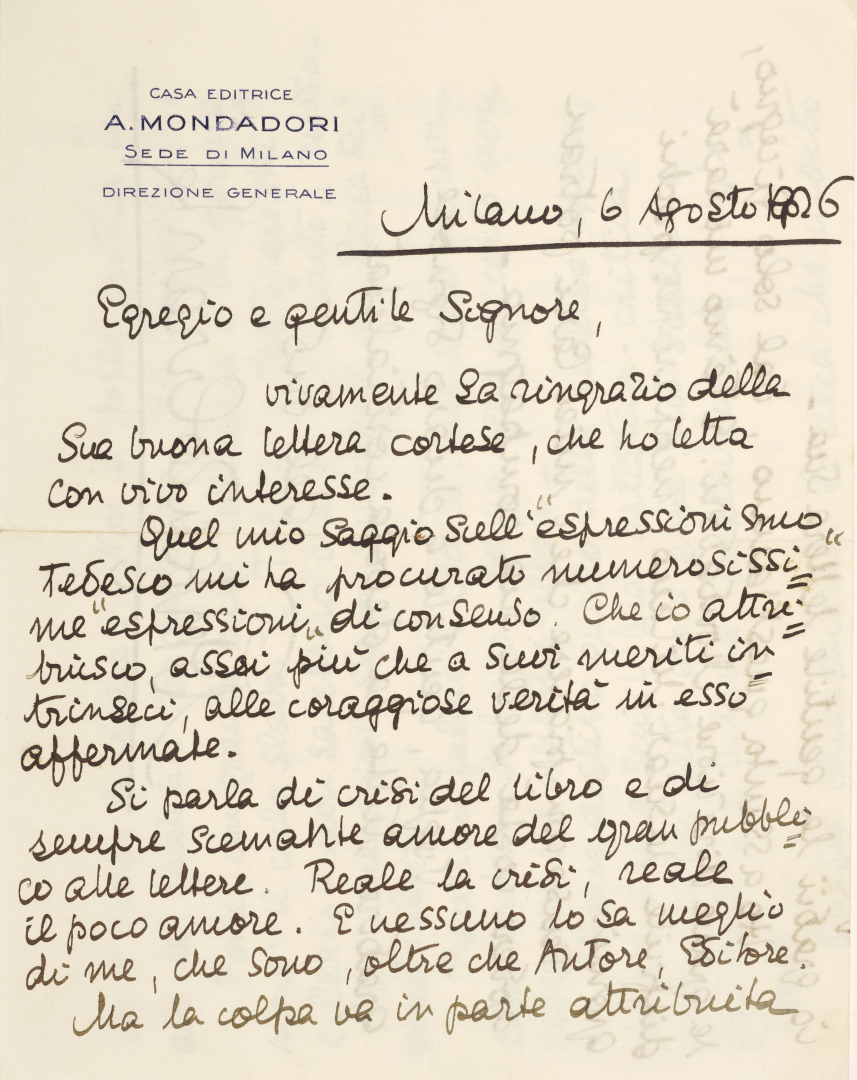 CASA EDITRICE
A. MONDADORI
SEDE DI MILANO
DIREZIONE GENERALE
Milano, 6 Agosto 1926
Egregio e gentile Signore,
vivamente La ringrazio della
Sua buona lettera cortese, che ho letta
con vivo interesse.
Quel mio Saggio sull' "espressionismo
Tedesco" mi ha procurato numerosissi=
me "espressioni" di consenso. Che io attri=
buisco, assai più che a suoi meriti in=
trinseci, alle coraggiose verità in esso
affermate.
Si parla di crisi del libro e di
sempre scemante amore del gran pubbli=
co alle lettere. Reale la crisi, reale
il poco amore. E nessuno lo sa meglio
di me, che sono, oltre che Autore, Editore.
Ma la colpa va in parte attribuita